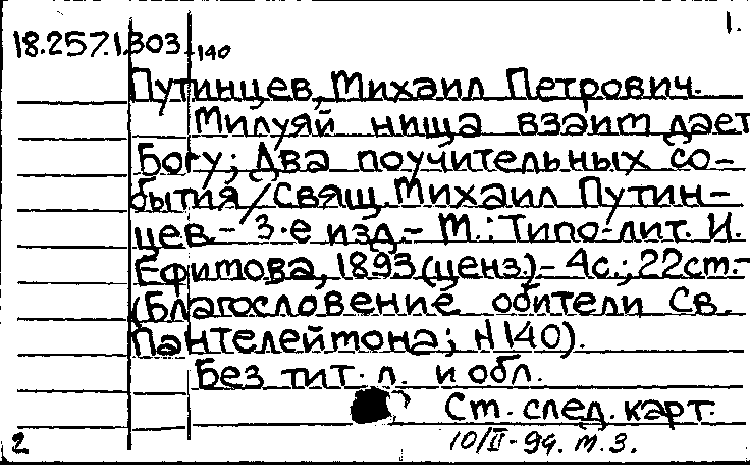 1.
18.257.1.303.140
Путинцев, Михаил Петрович.
Милуяй нища взаим дает
Богу; Два поучительных со-
бытия / Свящ. Михаил Путин-
цев.- 3-е изд.- М.: Типо-лит. И.
Ефимова, 1893 (ценз.).- 4с.; 22см.-
(Благословение обители Св.
Пантелеймона; N 140).
Без тит. л. и обл.
См. след. карт.
2 10/II-94. т.3.